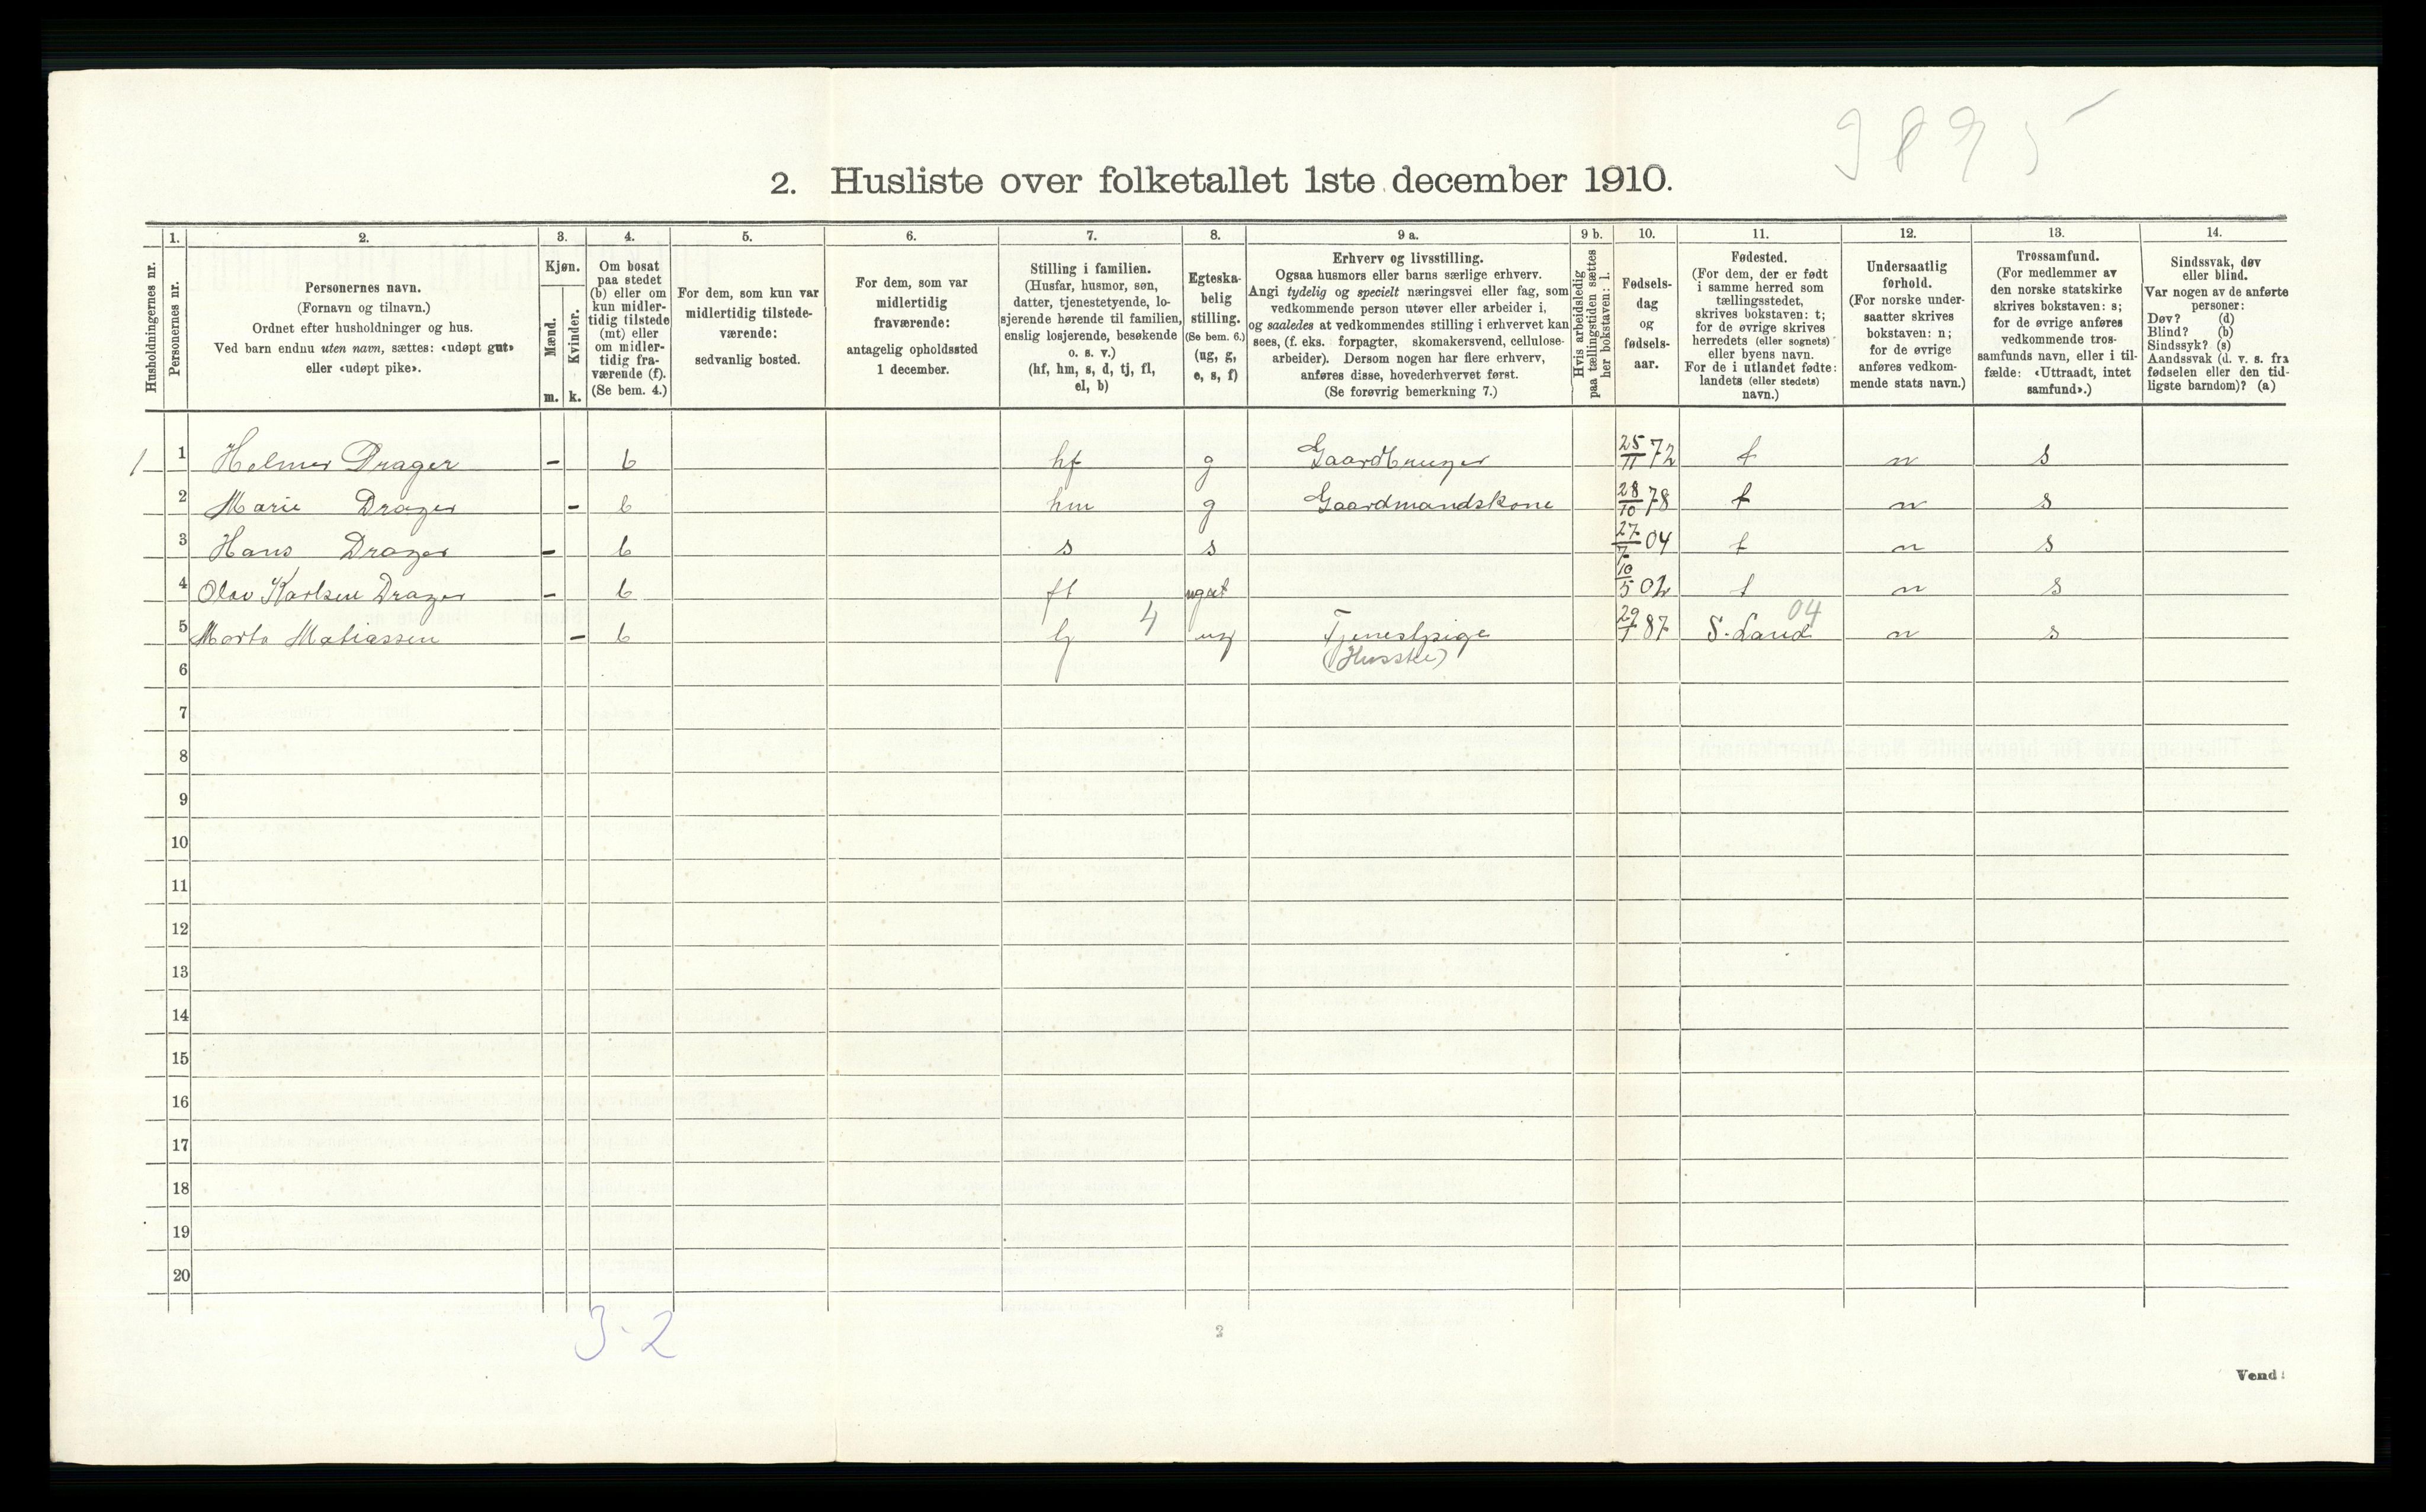 9895
2. Husliste over folketallet 1ste december 1910.
Husholdningernes nr.
1.
Personernes nr.
2.
Personernes navn.
(Fornavn og tilnavn.)
Ordnet efter husholdninger og hus.
Ved barn endnu uten navn, sættes: «udøpt gut»
eller «udøpt pike».
3.
Kjøn.
Mænd.
Kvinder.
m. k.
4.
Om bosat
paa stedet
(b) eller om
kun midler-
tidig tilstede
(mt) eller
om midler-
tidig fra-
værende (f).
(Se bem. 4.)
5.
For dem, som kun var
midlertidig tilstede-
værende:
sedvanlig bosted.
6.
For dem, som var
midlertidig
fraværende:
antagelig opholdssted
1 december.
7.
Stilling i familien.
(Husfar, husmor, søn,
datter, tjenestetyende, lo-
sjerende hørende til familien,
enslig losjerende, besøkende
o. s. v.)
(hf, hm, s, d, tj, fl,
el, b)
8.
Egteska-
belig
stilling.
(Se bem. 6.)
(ug, g,
e, s, f)
9 a.
Erhverv og livsstilling.
Ogsaa husmors eller barns særlige erhverv.
Angi tydelig og specielt næringsvei eller fag, som
vedkommende person utøver eller arbeider i,
og saaledes at vedkommendes stilling i erhvervet kan
sees, (f. eks. forpagter, skomakersvend, cellulose-
arbeider). Dersom nogen har flere erhverv,
anføres disse, hovederhvervet først.
(Se forøvrig bemerkning 7.)
9 b.
Hvis arbeidsledig
paa tællingstiden sættes
her bokstaven: l.
10.
Fødsels-
dag
og
fødsels-
aar.
11.
Fødested.
(For dem, der er født
i samme herred som
tællingsstedet,
skrives bokstaven: t;
for de øvrige skrives
herredets (eller sognets)
eller byens navn.
For de i utlandet fødte:
landets (eller stedets)
navn.)
12.
Undersaatlig
forhold.
(For norske under-
saatter skrives
bokstaven: n;
for de øvrige
anføres vedkom-
mende stats navn.)
13.
Trossamfund.
(For medlemmer av
den norske statskirke
skrives bokstaven: s;
for de øvrige anføres
vedkommende tros-
samfunds navn, eller i til-
fælde: «Uttraadt, intet
samfund».)
14.
Sindssvak, døv
eller blind.
Var nogen av de anførte
personer:
Døv? (d)
Blind? (b)
Sindssyk? (s)
Aandssvak (d. v. s. fra
fødselen eller den tid-
ligste barndom)? (a)
1 1 Helmer Drager - b hf g Gaardbruger 25/11 72 t n s
2 Marie Drager - b hm g Gaardmandskone 28/10 78 t n s
3 Hans Drager - b s s 27/7 04 t n s
4 Olav Karlsen Drager - b fl ugut 10/5 02 t n s
5 Marta Matiassen - b tj 4 ug Tjenestpige 29/1 87 S. Land 04 n s
6
7
8
9
10
11
12
13
14
15
16
17
18
19
20
3-2
2
Vend!